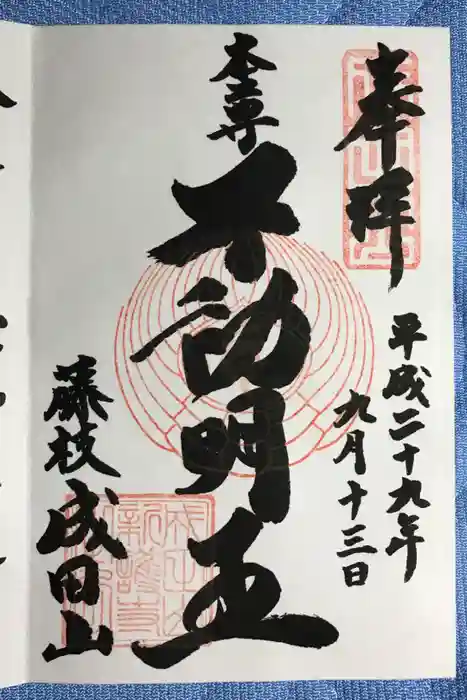 奉拝
平成二十九年
九月十三日
本尊
不動明王
藤枝成田山